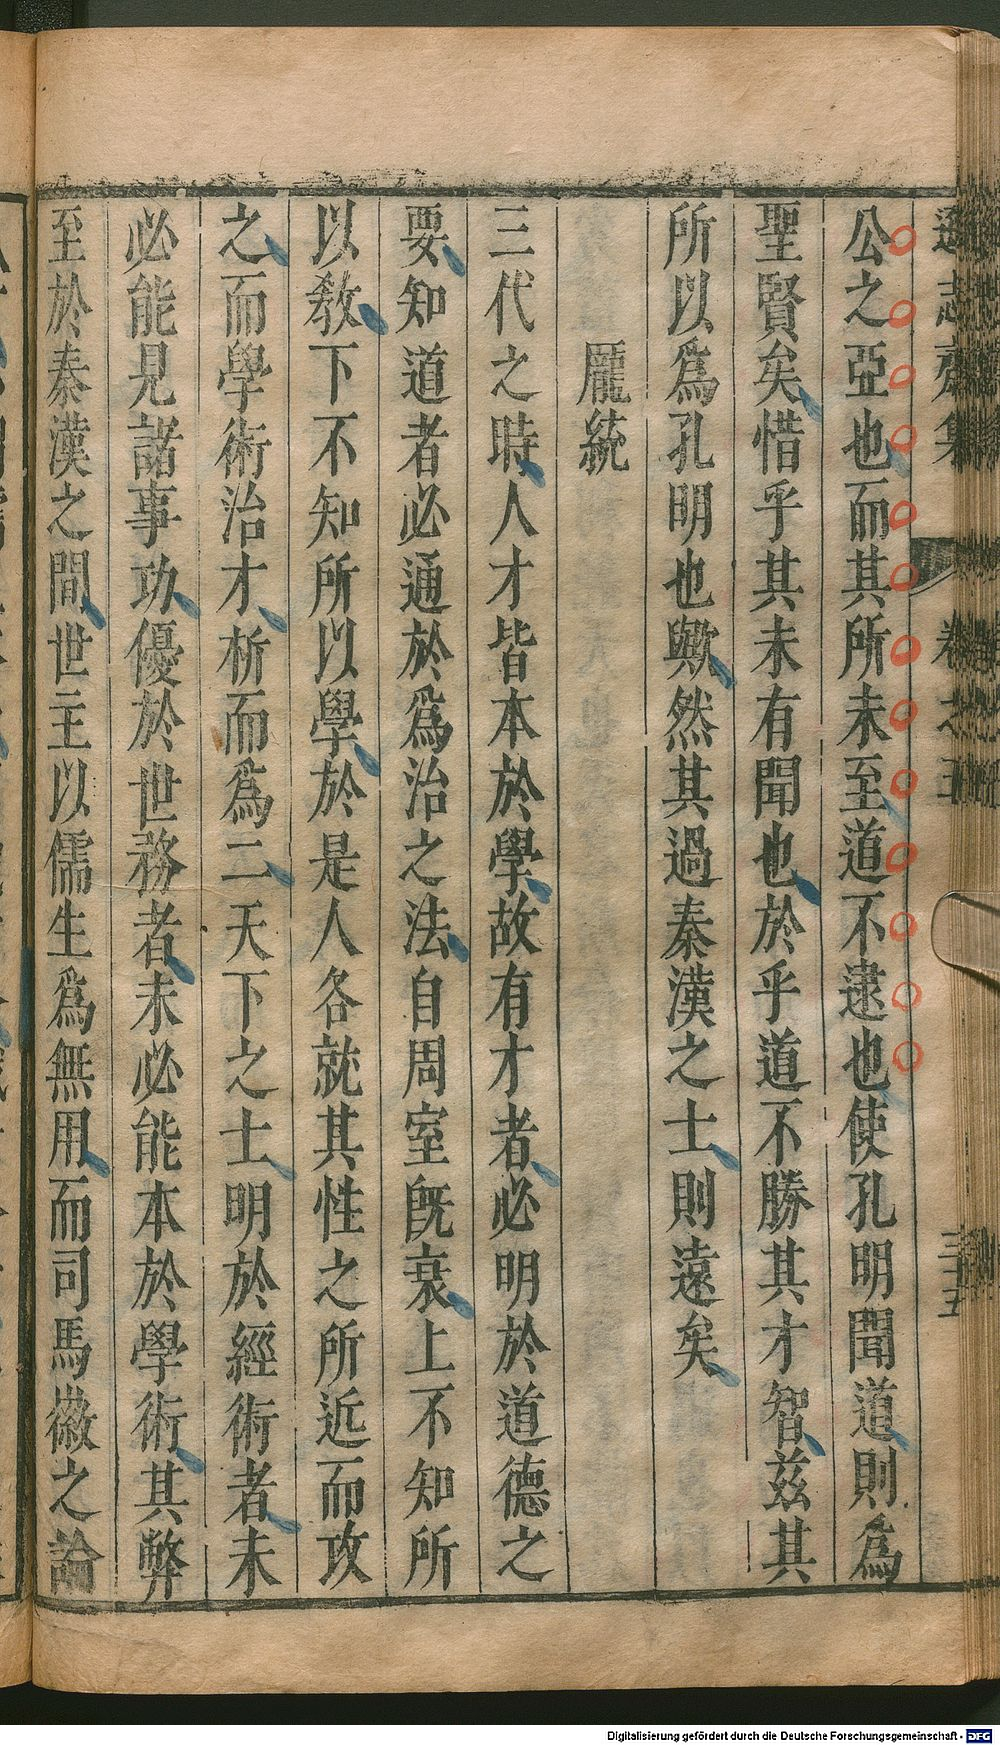 遜志齋集 卷之五 三十五
公之亞也而其所未至道不逮也使孔明聞道則爲
聖賢矣惜乎其未有聞也於乎道不勝其才智茲其
所以爲孔明也歟然其過秦漢之士則遠矣
龐統
三代之時人才皆本於學故有才者必明於道德之
要知道者必通於爲治之法自周室旣衰上不知所
以敎下不知所以學於是人各就其性之所近而攻
之而學術治才析而爲二天下之士明於經術者未
必能見諸事功優於世務者未必能本於學術其弊
至於秦漢之間世主以儒生爲無用而司馬徽之論
Digitalisierung gefördert durch die Deutsche Forschungsgemeinschaft - DFG